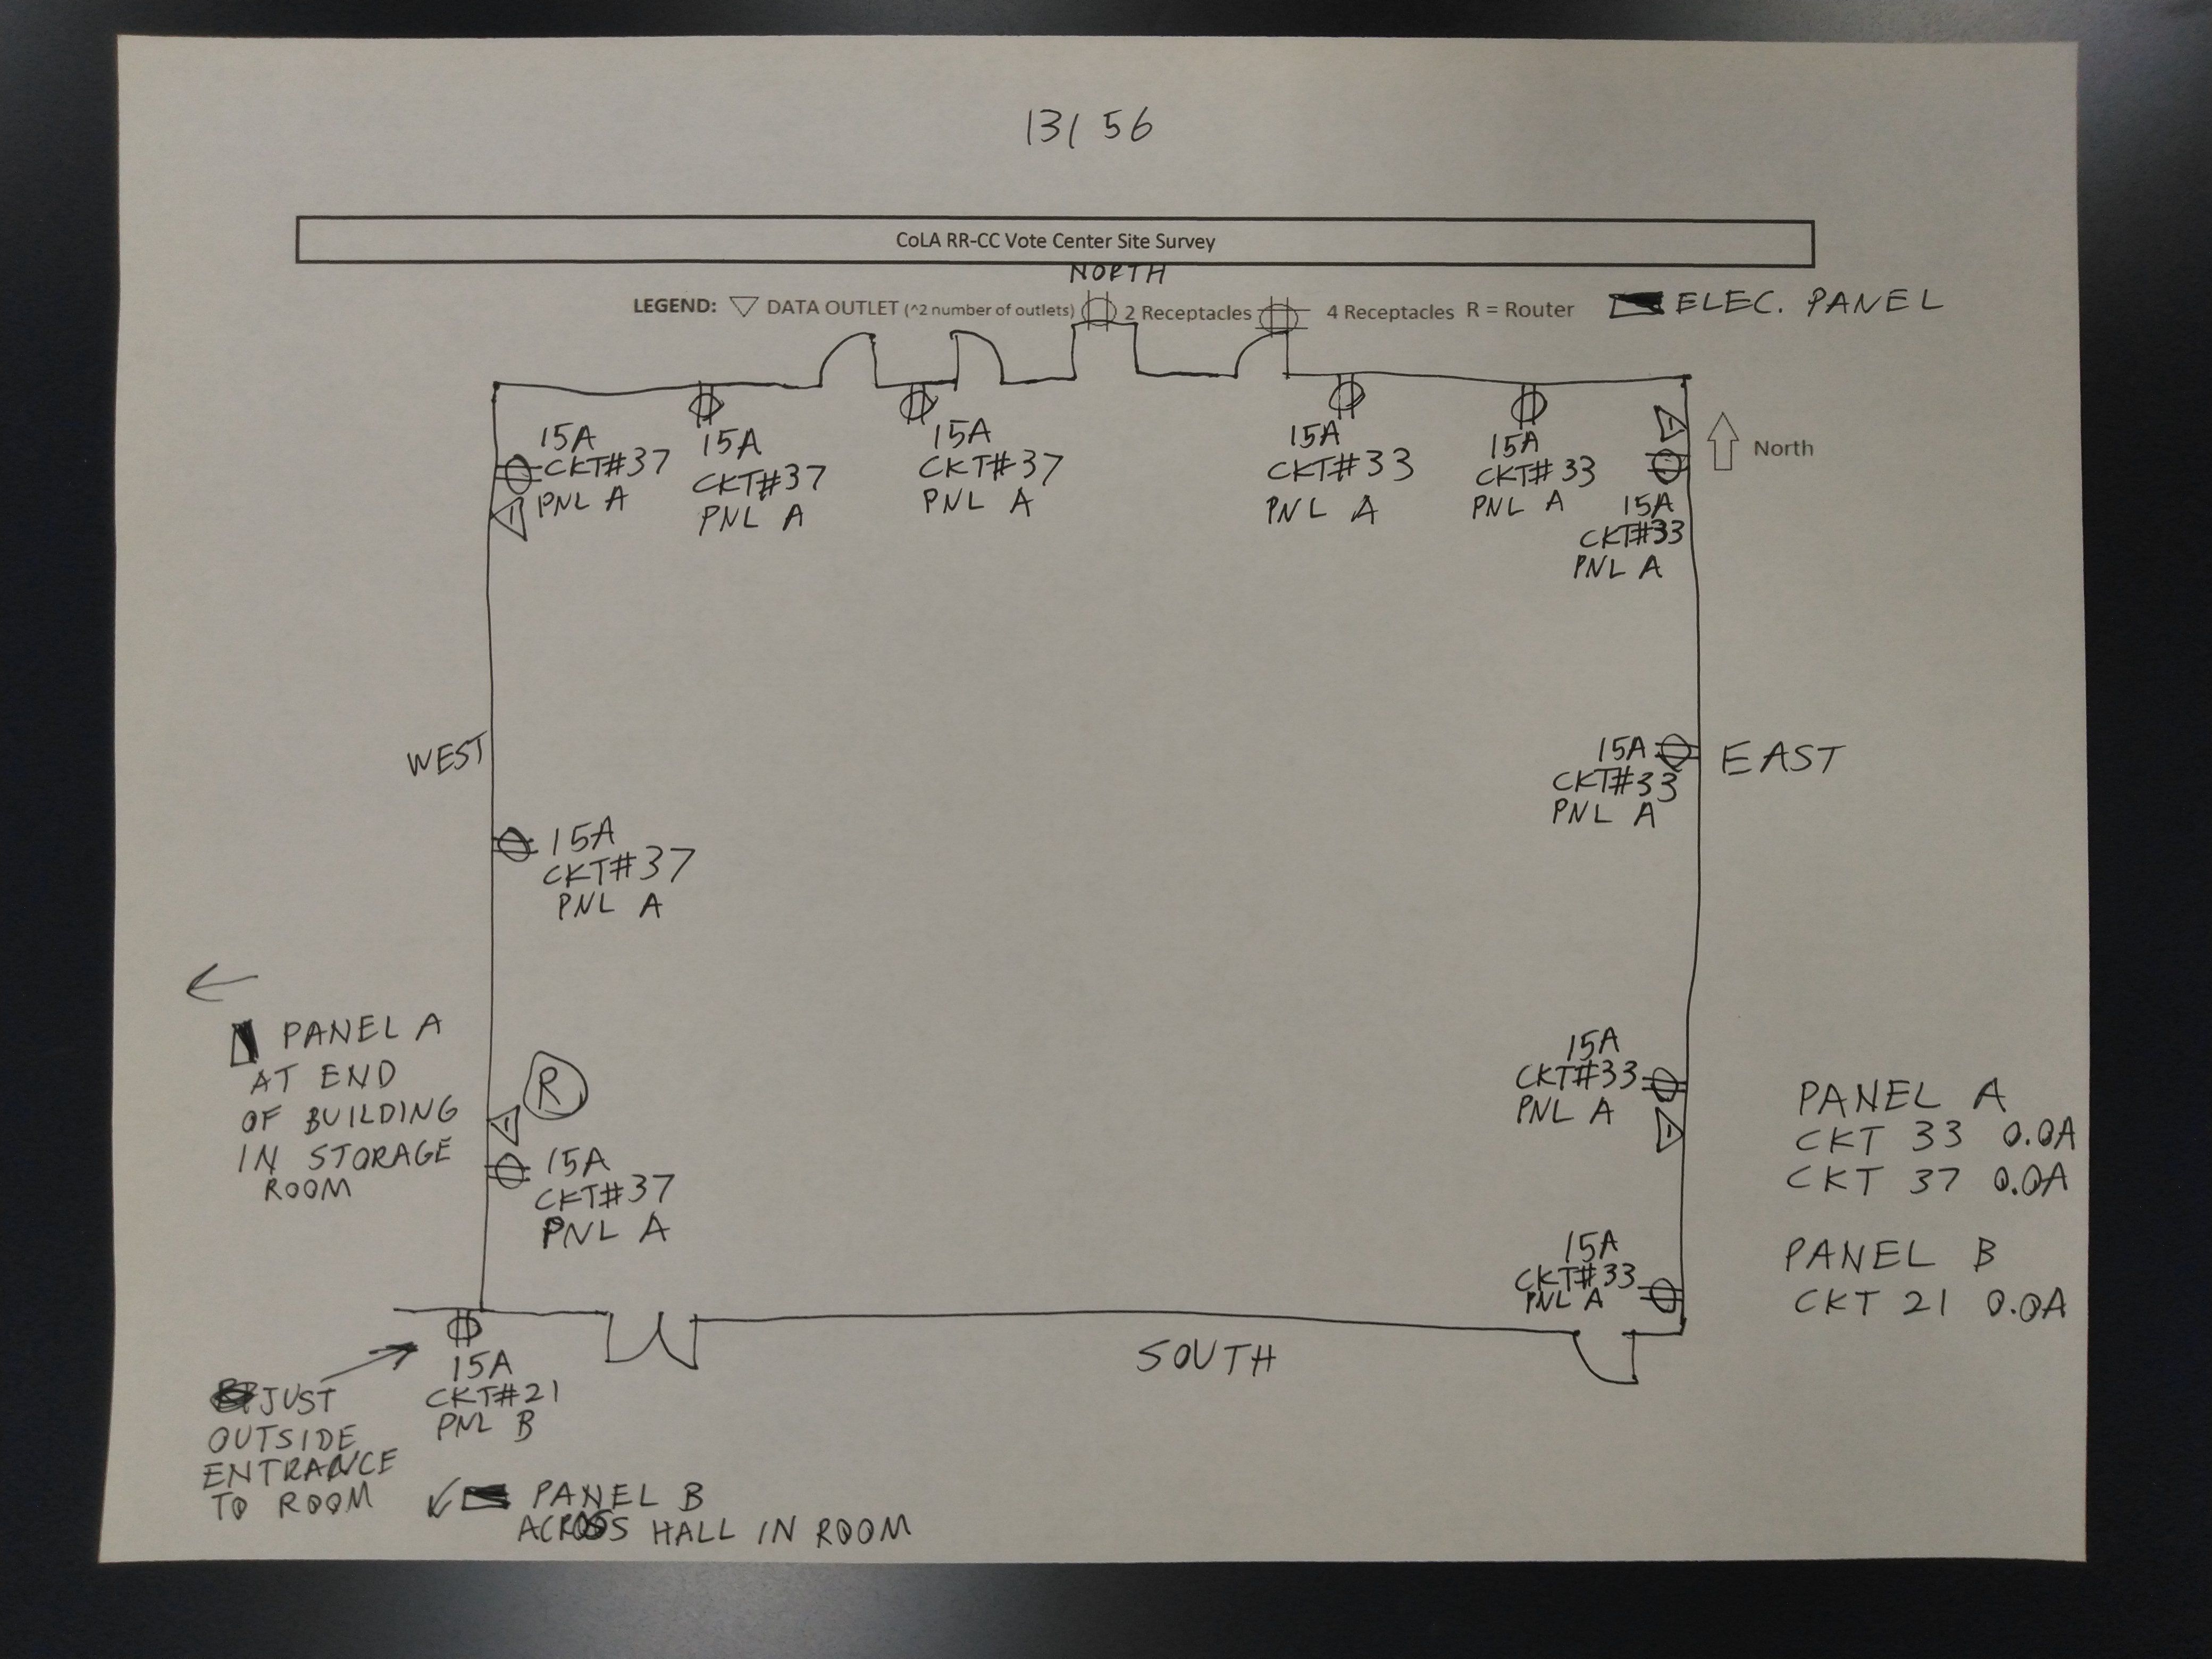 13156
CoLA RR-CC Vote Center Site Survey
NORTH
LEGEND: DATA OUTLET (^2 number of outlets) 2 Receptacles 4 Receptacles R = Router ELEC. PANEL
North
15A
CKT#37
PNL A
15A
CKT#37
PNL A
15A
CKT#37
PNL A
15A
CKT#33
PNL A
15A
CKT#33
PNL A
15A
CKT#33
PNL A
WEST
15A
CKT#33
PNL A
EAST
15A
CKT#37
PNL A
PANEL A
AT END
OF BUILDING
IN STORAGE
ROOM
R
15A
CKT#37
PNL A
15A
CKT#33
PNL A
15A
CKT#33
PNL A
PANEL A
CKT 33 0.0A
CKT 37 0.0A
PANEL B
CKT 21 0.0A
SOUTH
15A
CKT#21
PNL B
JUST
OUTSIDE
ENTRANCE
TO ROOM
PANEL B
ACROSS HALL IN ROOM